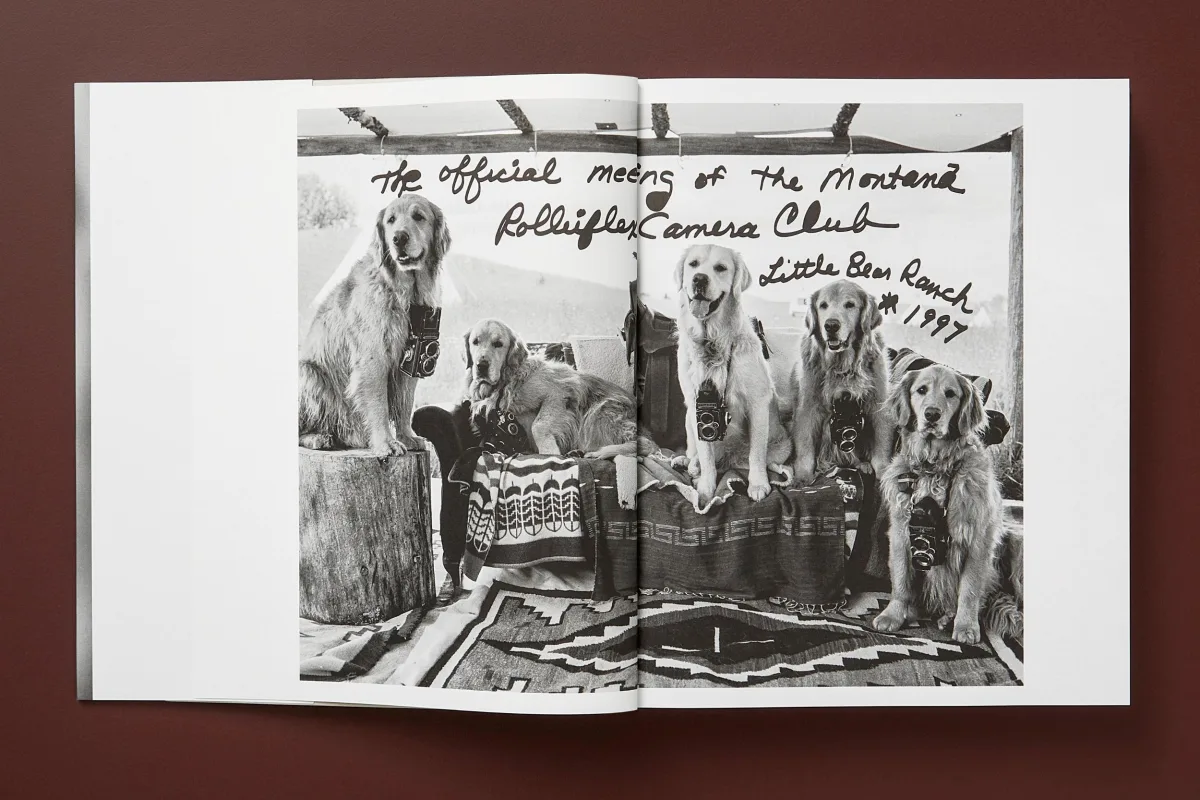 The official meeing of the Montana
Rolleiflex Camera Club
Little Bear Ranch
# 1997